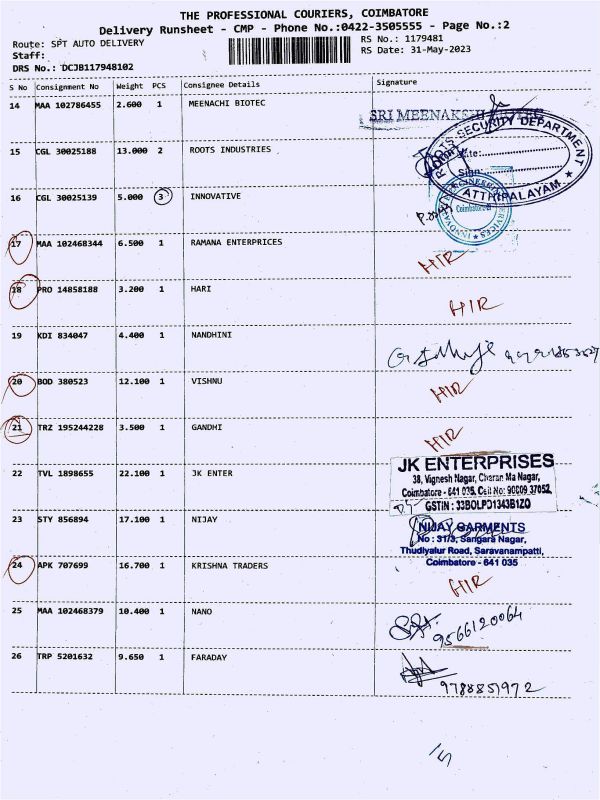 THE PROFESSIONAL COURIERS, COIMBATORE
Delivery Runsheet - CMP - Phone No.:0422-3505555 - Page No.:2
Route: SPT AUTO DELIVERY
RS No.: 1179481
Staff:
RS Date: 31-May-2023
DRS No.: DCJB117948102
S No Consignment No Weight PCS Consignee Details Signature
14 MAA 102786455 2.600 1 MEENACHI BIOTEC
SRI MEENAKSHI
ROOTS SECURITY DEPARTMENT
15 CGL 30025188 13.000 2 ROOTS INDUSTRIES
Date:
Sign:
ATTHIPALAYAM
16 CGL 30025139 5.000 3 INNOVATIVE
Coimbatore
17 MAA 102468344 6.500 1 RAMANA ENTERPRICES
HIR
18 PRO 14858188 3.200 1 HARI
HIR
19 KDI 834047 4.400 1 NANDHINI
20 BOD 380523 12.100 1 VISHNU
HIR
21 TRZ 195244228 3.500 1 GANDHI
HIR
22 TVL 1898655 22.100 1 JK ENTER
JK ENTERPRISES
38, Vignesh Nagar, Charan Ma Nagar,
Coimbatore - 641 035. Cell No: 90809 37052
GSTIN : 33BOLPD1343B1ZO
23 STY 856894 17.100 1 NIJAY
NIJAY GARMENTS
No : 31/3, Sangara Nagar,
Thudiyalur Road, Saravanampatti,
Coimbatore - 641 035
24 APK 707699 16.700 1 KRISHNA TRADERS
HIR
25 MAA 102468379 10.400 1 NANO
9566120064
26 TRP 5201632 9.650 1 FARADAY
9788851972